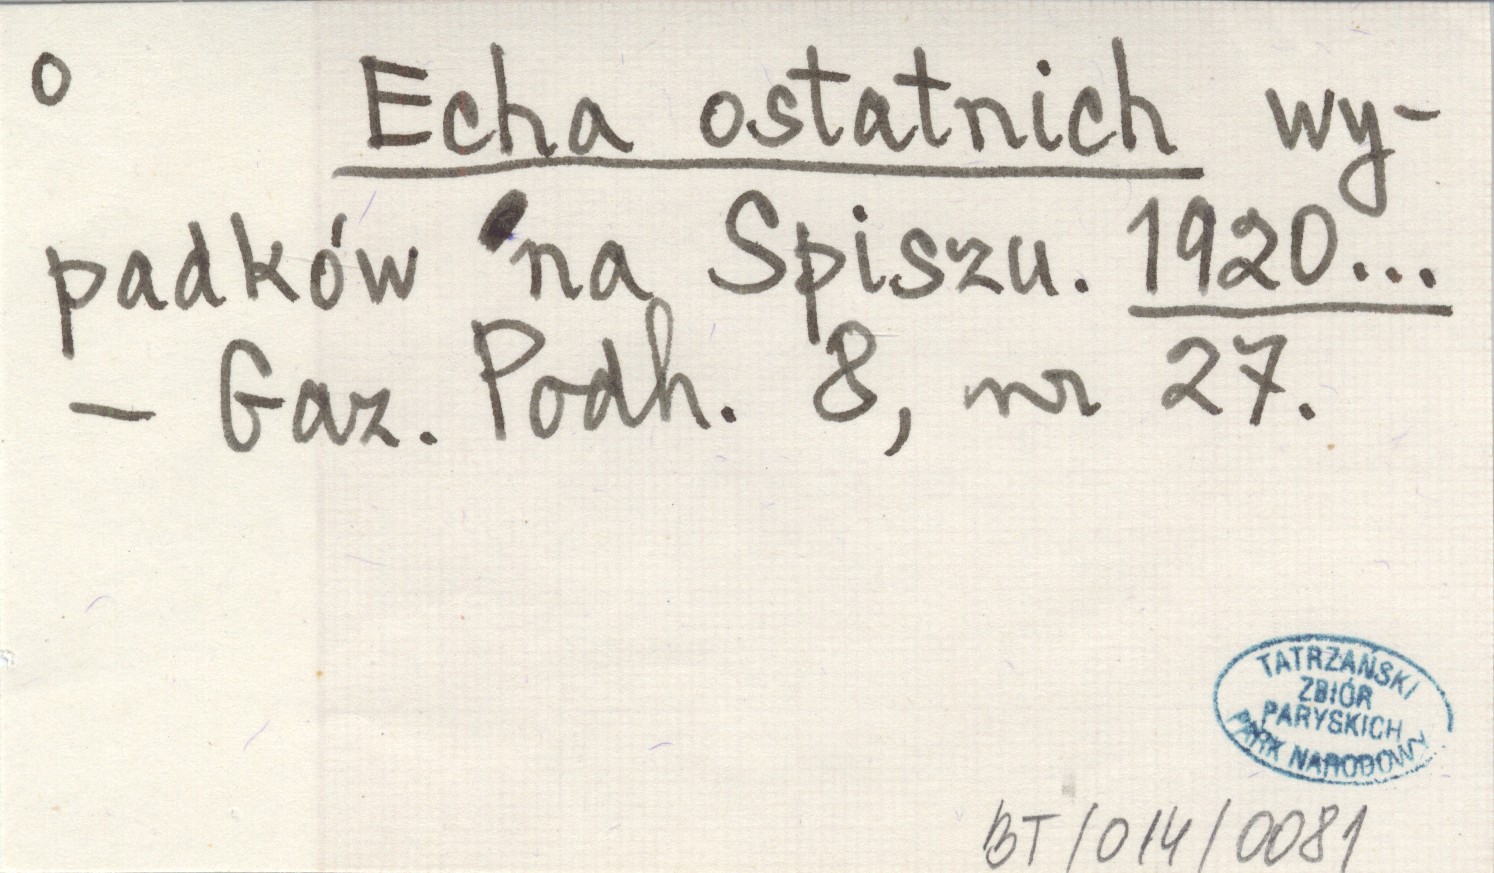 o Echa ostatnich wy-
padków na Spiszu. 1920...
— Gaz. Podh. 8, nr 27.
TATRZAŃSKI
ZBIÓR
PARYSKICH
PARK NARODOWY
BT/014/0081